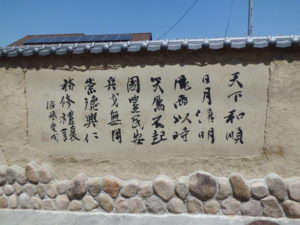 天下和順
日月清明
風雨以時
災厲不起
國豐民安
兵戈無用
崇德興仁
務修禮讓